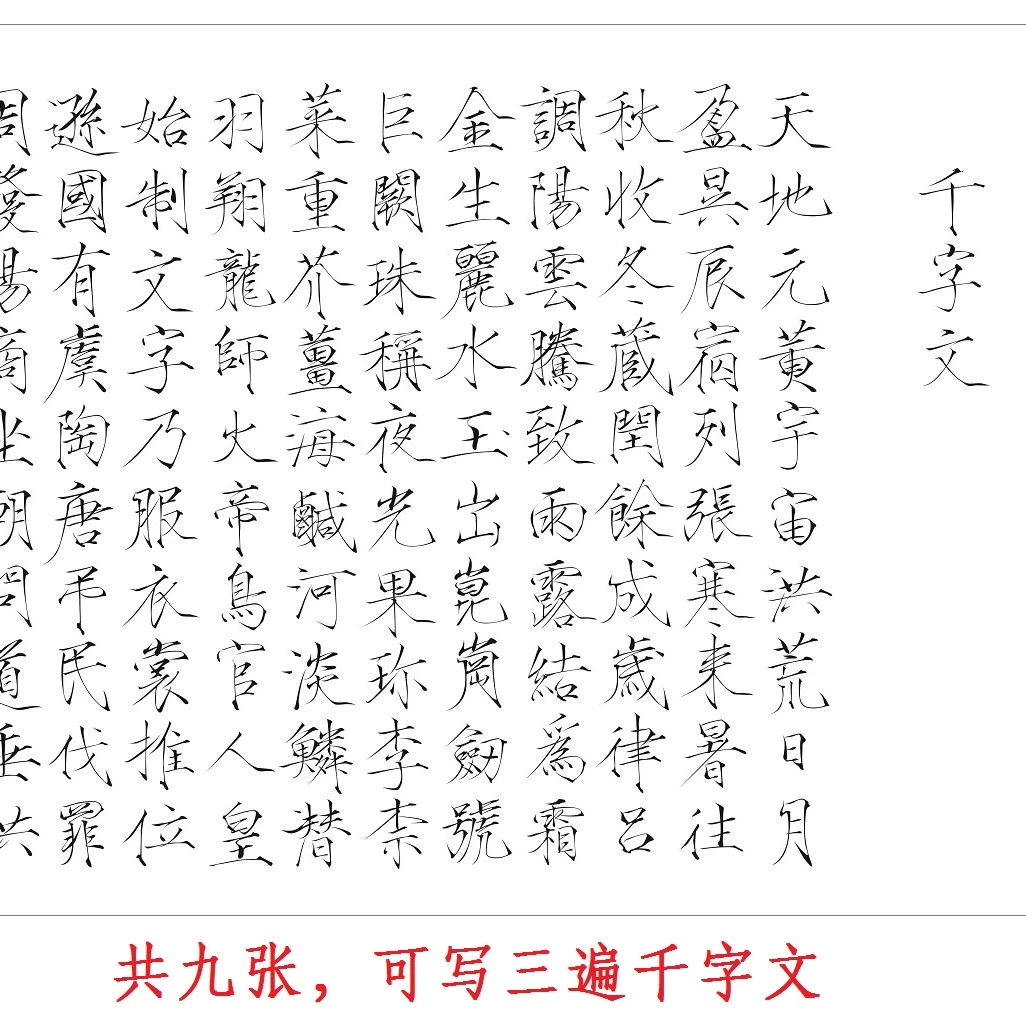 千字文
天地元黃宇宙洪荒日月
盈昃辰宿列張寒来暑往
秋收冬蔵閏餘成歲律呂
調陽雲騰致雨露結爲霜
金生麗水玉出崑崗劔號
巨闕珠稱夜光果珎李柰
菜重芥薑海鹹河淡鱗潛
羽翔龍師火帝鳥官人皇
始制文字乃服衣裳推位
遜國有虞陶唐弔民伐罪
周發湯商坐朝問道垂拱
共九张，可写三遍千字文